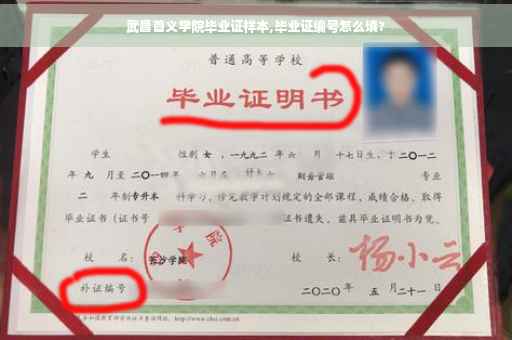 武昌首义学院毕业证样本,毕业证编号怎么填?
普通高等学校
毕业证明书
学生 性别 女 ,一九九二 年 六 月 十七日生,于二〇一二
年 九 月至二〇一四年 六月在 财务管理 专业
二 年制专升本 科学习,修完教学计划规定的全部课程,成绩合格,取得
毕业证书(证书号 证书遗失,兹具毕业证明书为凭。
校 名: 长沙学院 校 长: 杨小云
补证编号 二〇二〇年 五 月二十一日
http://www.chsi.com.cn